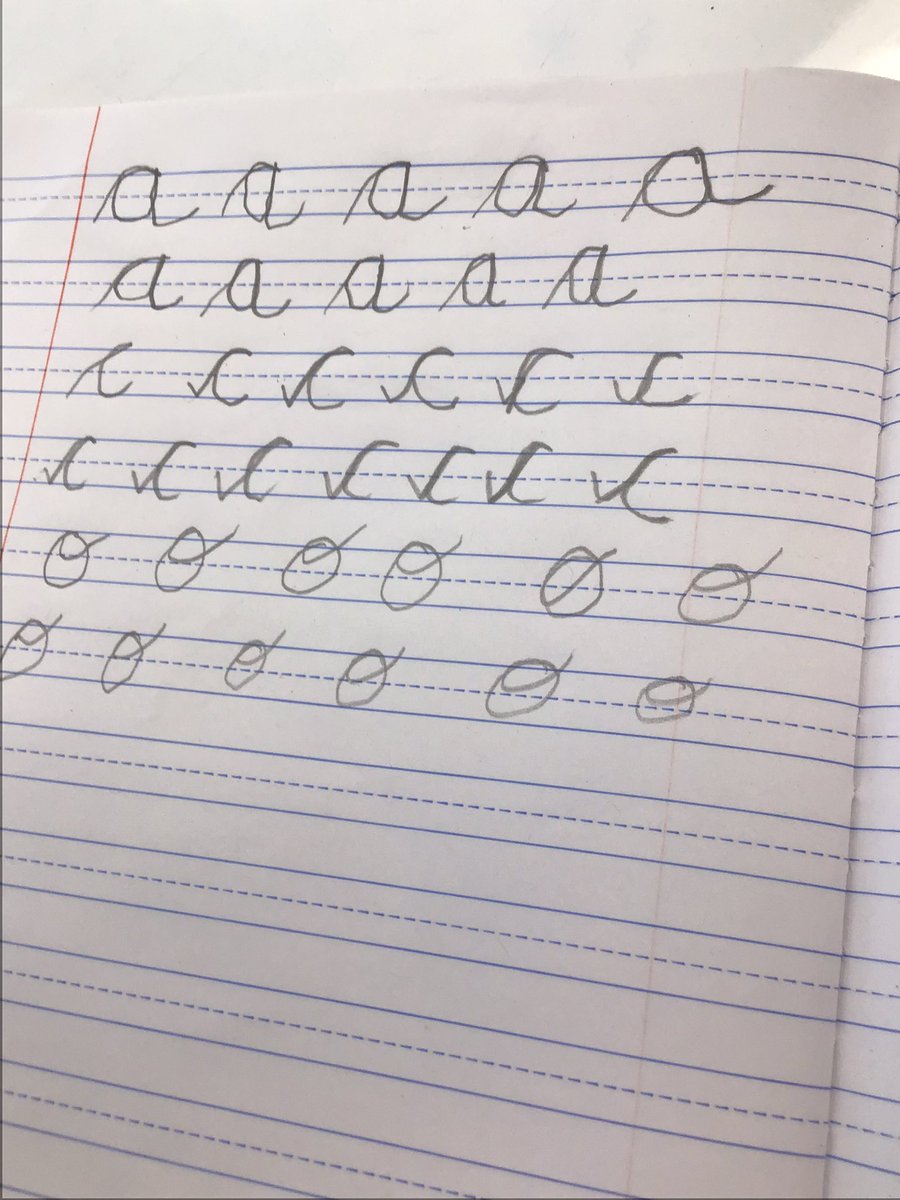 a a a a a
a a a a a
c c c c c c
c c c c c c c
o o o o o o
o o o o o o